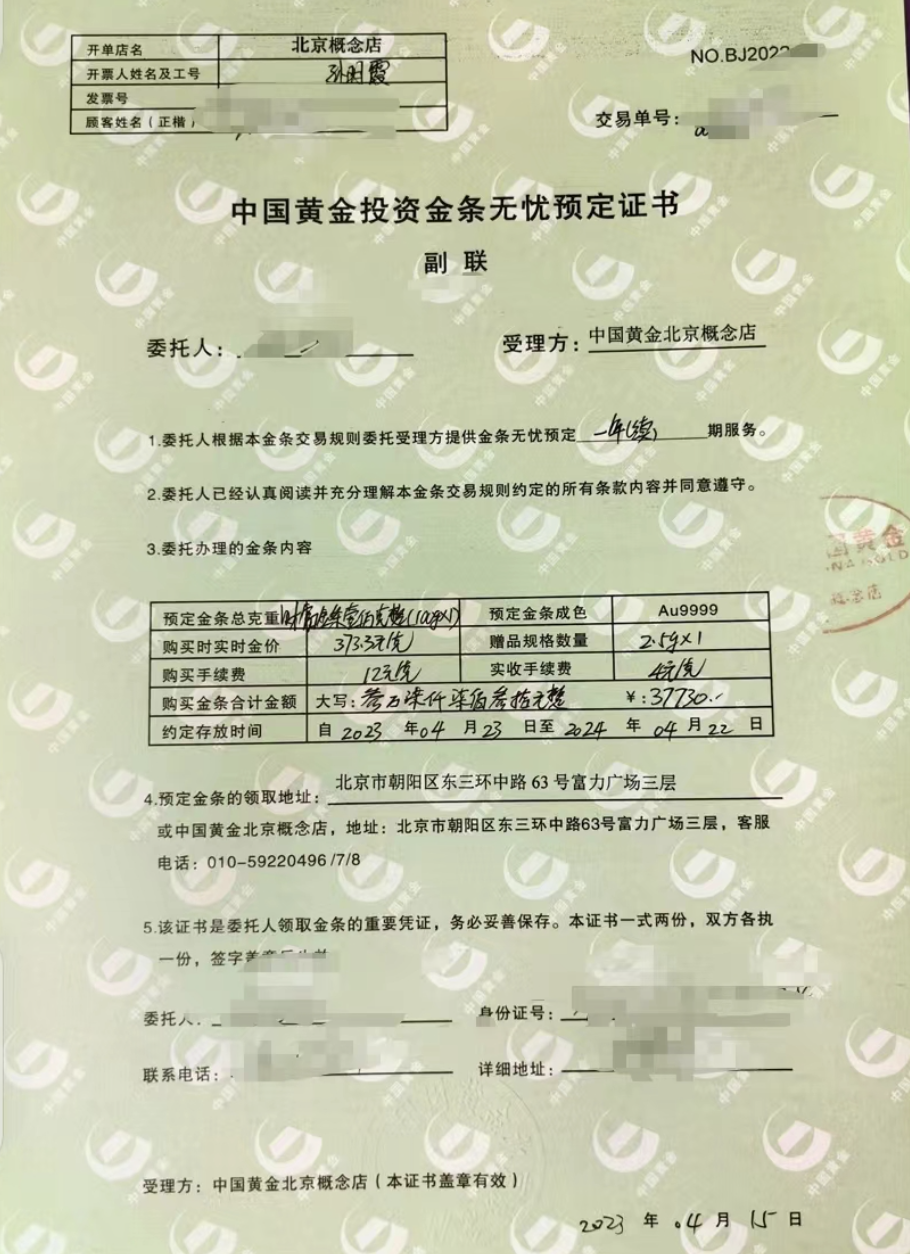 开单店名 北京概念店
开票人姓名及工号
发票号
顾客姓名(正楷)
NO.BJ202
交易单号:
中国黄金投资金条无忧预定证书
副 联
委托人:
受理方:中国黄金北京概念店
1.委托人根据本金条交易规则委托受理方提供金条无忧预定 一年(续) 期服务。
2.委托人已经认真阅读并充分理解本金条交易规则约定的所有条款内容并同意遵守。
3.委托办理的金条内容
预定金条总克重 财富金条壹佰克整(100g×1) 预定金条成色 Au9999
购买时实时金价 373.3元/克 赠品规格数量 2.5g×1
购买手续费 12元/克 实收手续费 4元/克
购买金条合计金额 大写:叁万柒仟柒佰叁拾元整 ¥:37730.-
约定存放时间 自 2023 年 04 月 23 日至 2024 年 04 月 22 日
4.预定金条的领取地址:北京市朝阳区东三环中路 63 号富力广场三层
或中国黄金北京概念店,地址:北京市朝阳区东三环中路63号富力广场三层,客服
电话:010-59220496/7/8
5.该证书是委托人领取金条的重要凭证,务必妥善保存。本证书一式两份,双方各执
一份,签字
委托人:
身份证号:
联系电话:
详细地址:
受理方:中国黄金北京概念店(本证书盖章有效)
2023 年 04 月 15 日
国黄金
NA GOLD
概念店
中国黄金